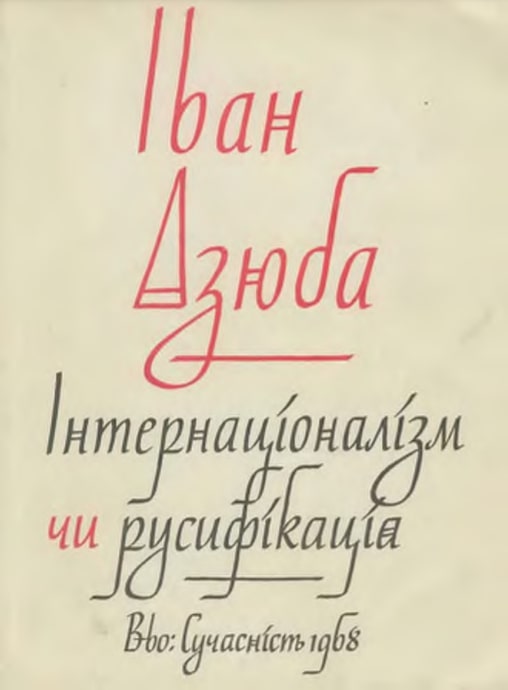 Іван
Дзюба
Інтернаціоналізм
чи русифікація
В-во: Сучасність 1968